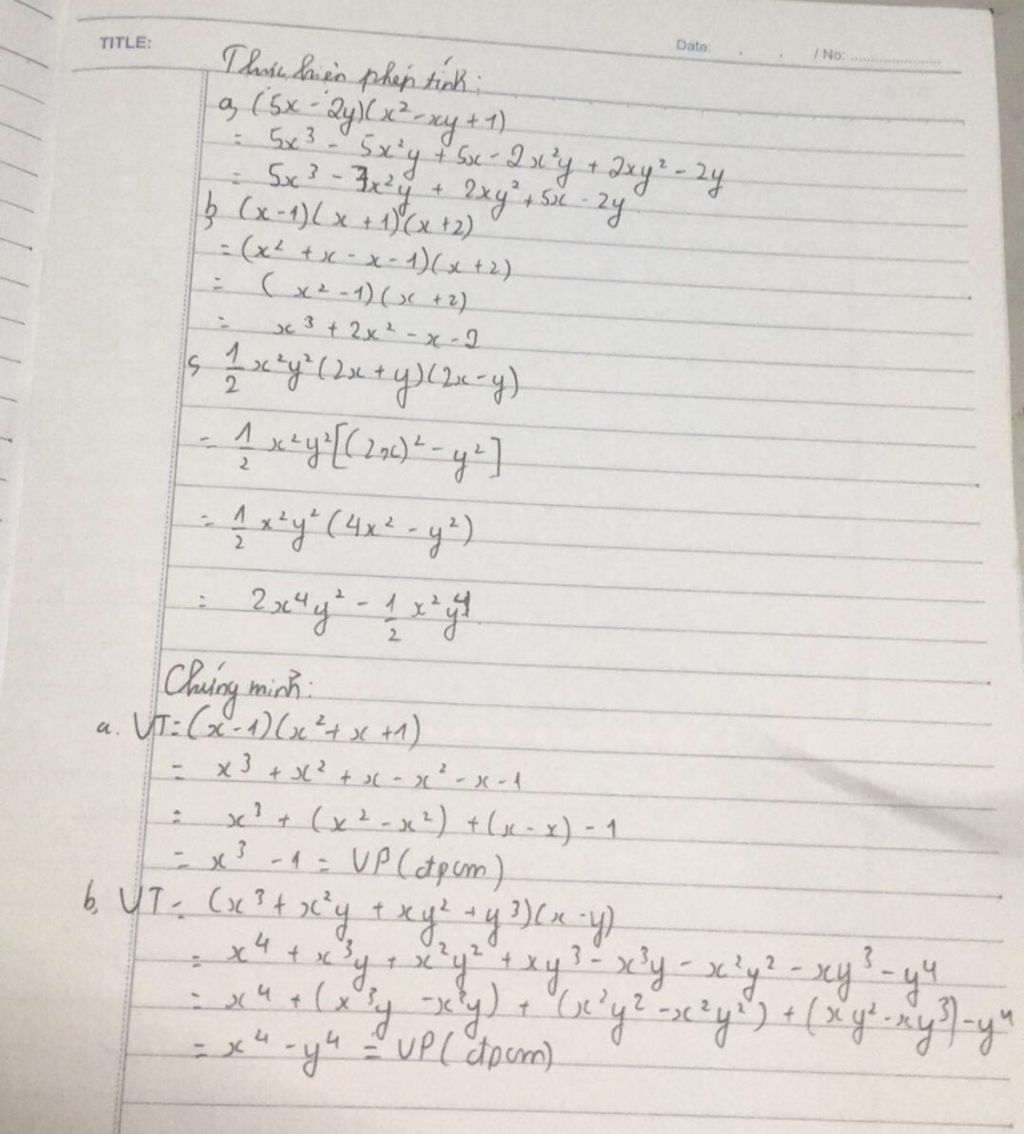 TITLE:
Date: . . / No: ........................
Thực hiện phép tính:
a, (5x - 2y)(x² - xy + 1)
= 5x³ - 5x²y + 5x - 2x²y + 2xy² - 2y
= 5x³ - 7x²y + 2xy² + 5x - 2y
b, (x-1)(x+1)(x+2)
= (x² + x - x - 1)(x+2)
= (x² - 1)(x + 2)
= x³ + 2x² - x - 2
c, 1/2 x²y² (2x + y)(2x - y)
= 1/2 x²y² [(2x)² - y²]
= 1/2 x²y² (4x² - y²)
= 2x⁴y² - 1/2 x²y⁴
Chứng minh:
a. VT = (x-1)(x² + x + 1)
= x³ + x² + x - x² - x - 1
= x³ + (x² - x²) + (x - x) - 1
= x³ - 1 = VP (đpcm)
b, VT = (x³ + x²y + xy² + y³)(x - y)
= x⁴ + x³y + x²y² + xy³ - x³y - x²y² - xy³ - y⁴
= x⁴ + (x³y - x³y) + (x²y² - x²y²) + (xy² - xy³) - y⁴
= x⁴ - y⁴ = VP (đpcm)